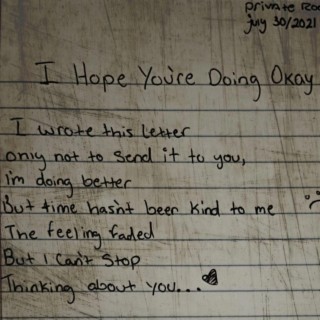 private Roo
july 30/2021
I Hope You're Doing Okay
I wrote this letter
only not to send it to you,
i'm doing better
But time hasn't been kind to me
The feeling faded
But I can't stop
Thinking about you...